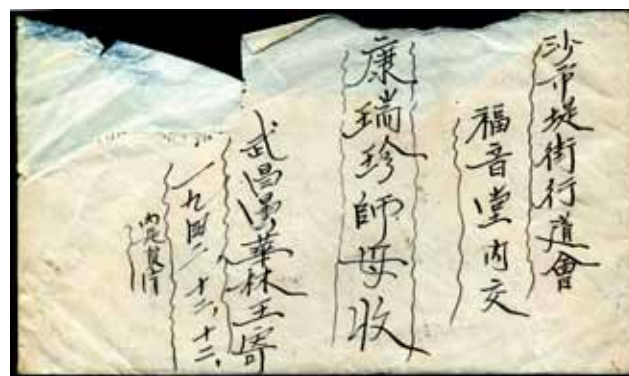 沙市堤街行道會
福音堂內交
康瑞珍師母收
武昌曇華林王寄
一九四二、十二、十二、